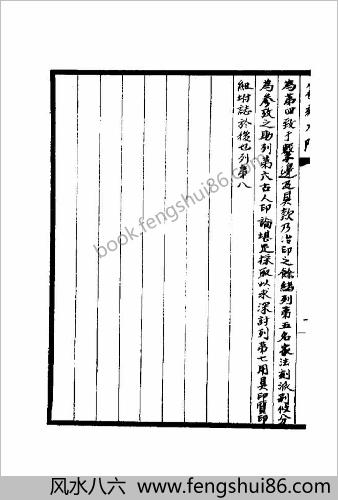 為第四致于擊邊及具款乃治印之餘緒列第五名家法刻派別歧分
為參攷之助列第六古人印論堪足採取以求深討列第七用具印質印
組坿誌於後也列第八
book.fengshui86.com
风水八六 www.fengshui86.com